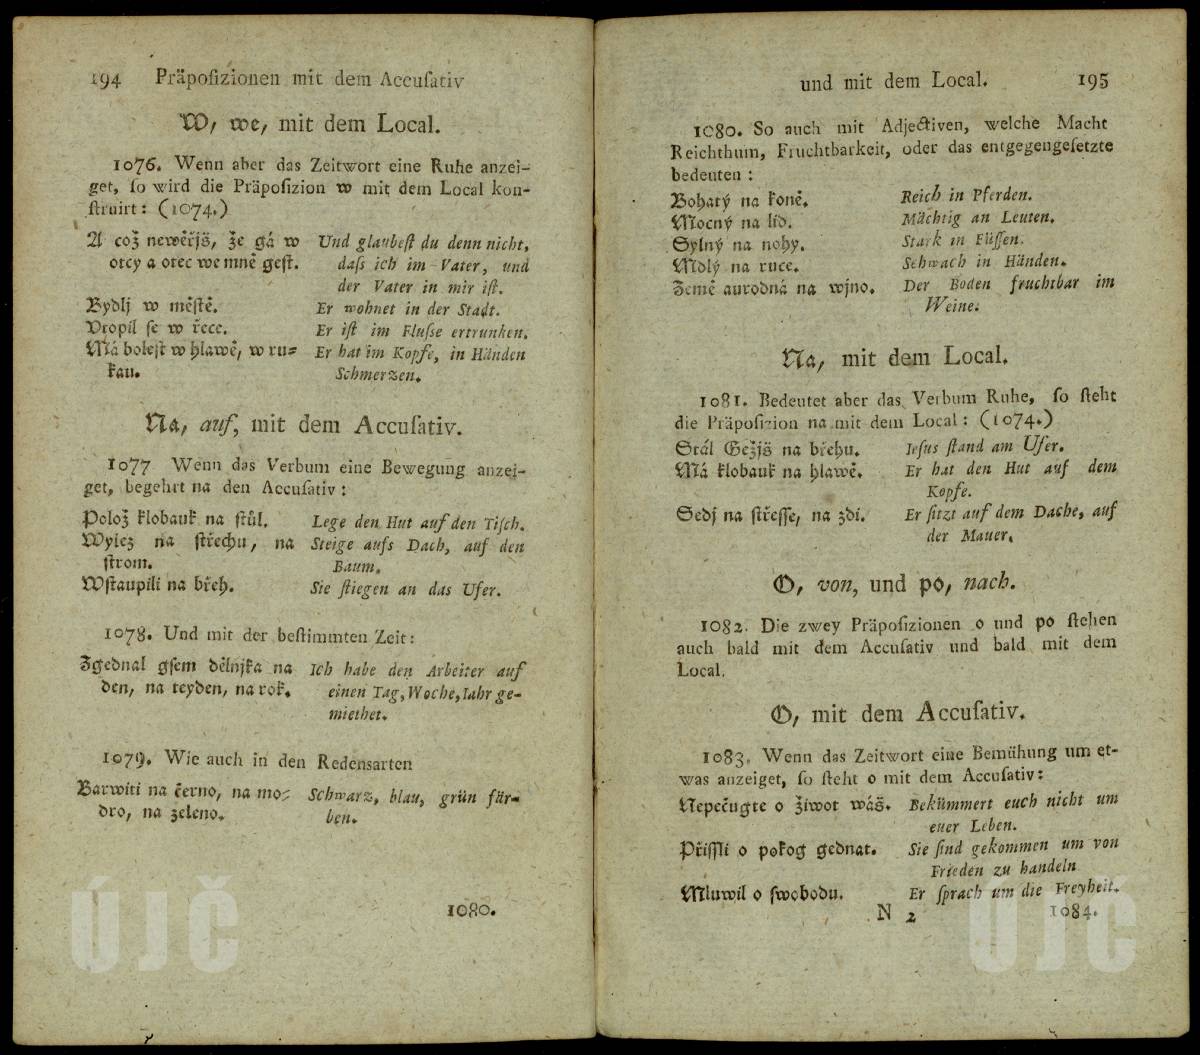 194 Präpoſizionen mit dem Accuſativ
W, we, mit dem Local.
1076. Wenn aber das Zeitwort eine Ruhe anzei-
get, ſo wird die Präpoſizion w mit dem Local kon-
ſtruirt: (1074.)
A což newěřjš, že gá w Und glaubeſt du denn nicht,
otcy a otec we mně geſt. daſs ich im Vater, und
der Vater in mir iſt.
Bydlj w měſtě. Er wohnet in der Stadt.
Vtopil ſe w řece. Er iſt im Fluſse ertrunken.
Má boleſt w hlawě, w ru= Er hat im Kopfe, in Händen
kau. Schmerzen.
Na, auf, mit dem Accuſativ.
1077 Wenn das Verbum eine Bewegung anzei-
get, begehrt na den Accuſativ:
Polož klobauk na ſtůl. Lege den Hut auf den Tiſch.
Wylez na ſtřechu, na Steige aufs Dach, auf den
ſtrom. Baum.
Wſtaupili na břeh. Sie ſtiegen an das Ufer.
1078. Und mit der beſtimmten Zeit:
Zgednal gſem dělnjka na Ich habe den Arbeiter auf
den, na teyden, na rok. einen Tag, Woche, Iahr ge-
miethet.
1079. Wie auch in den Redensarten
Barwiti na černo, na mo= Schwarz, blau, grün fär-
dro, na zeleno. ben.
1080.
und mit dem Local. 195
1080. So auch mit Adjectiven, welche Macht
Reichthum, Fruchtbarkeit, oder das entgegengeſetzte
bedeuten:
Bohatý na koně. Reich in Pferden.
Mocný na lid. Mächtig an Leuten.
Sylný na nohy. Stark in Füſſen.
Mdlý na ruce. Schwach in Händen.
Země aurodná na wjno. Der Boden fruchtbar im
Weine.
Na, mit dem Local.
1081. Bedeutet aber das Verbum Ruhe, ſo ſteht
die Präpoſizion na mit dem Local: (1074.)
Stál Gežjš na břehu. Ieſus ſtand am Ufer.
Má klobauk na hlawě. Er hat den Hut auf dem
Kopfe.
Sedj na ſtřeſſe, na zdi. Er ſitzt auf dem Dache, auf
der Mauer.
O, von, und po, nach.
1082. Die zwey Präpoſizionen o und po ſtehen
auch bald mit dem Accuſativ und bald mit dem
Local.
O, mit dem Accuſativ.
1083. Wenn das Zeitwort eine Bemühung um et-
was anzeiget, ſo ſteht o mit dem Accuſativ:
Nepečugte o žiwot wáš. Bekümmert euch nicht um
euer Leben.
Přiſſli o pokog gednat. Sie ſind gekommen um von
Frieden zu handeln
Mluwil o ſwobodu. Er ſprach um die Freyheit.
N 2 1084.
ÚJČ ÚJČ